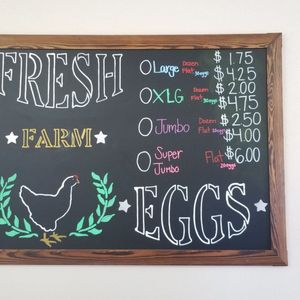 FRESH
FARM
EGGS
Large Dozen $1.75
Flat 30eggs $4.25
XLG Dozen $2.00
Flat 30eggs $4.75
Jumbo Dozen $2.50
Flat 20eggs $4.00
Super Jumbo Flat 20eggs $6.00